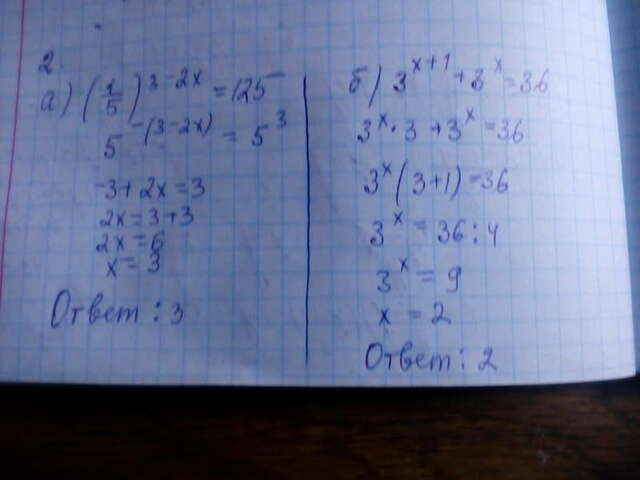 2.
а) (1/5)^(3-2x) = 125
5^(-(3-2x)) = 5^3
-3+2x=3
2x=3+3
2x=6
x=3
Ответ: 3
б) 3^(x+1) + 3^x = 36
3^x · 3 + 3^x = 36
3^x (3+1) = 36
3^x = 36 : 4
3^x = 9
x = 2
Ответ: 2